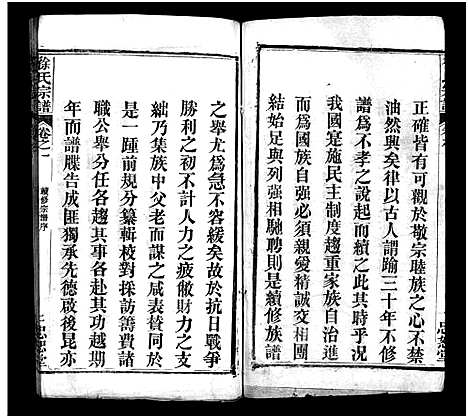 正確皆有可觀於敬宗睦族之心不禁
油然興矣律以古人謂踰三十年不修
譜爲不孝之說起而續之此其時乎況
我國是施民主制度趨重家族自治進
而爲國族自強必須親愛精誠交相團
結始足與列強相騁聘則是續修族譜
之舉尤爲急不容緩矣故於抗日戰爭
勝利之次不計人力之疲憊財力之支
絀乃集族中父老而謀之咸表賛同於
是一踵前規分纂輯校對採訪籌費諸
職公舉分任各趨其事各赴其功越期
年而譜牒告成匪獨承先德啟後昆亦
徐氏宗譜
卷之一
續修宗譜序
忠恕堂